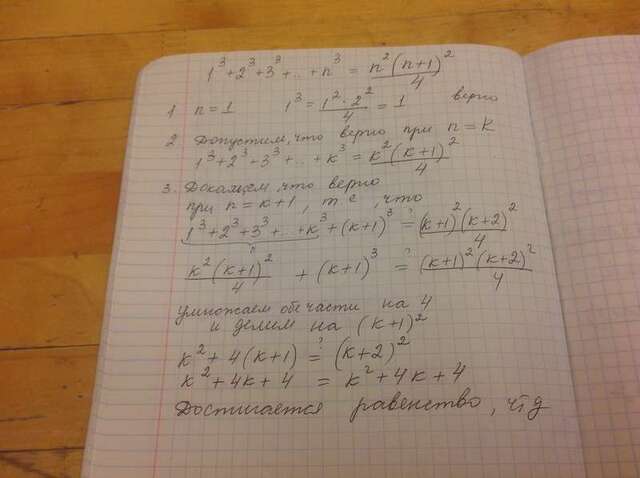 1³+2³+3³+..+n³ = n²(n+1)²/4
1 n=1 1³ = 1²·2²/4 = 1 верно
2 Допустим, что верно при n=k
1³+2³+3³+..+k³ = k²(k+1)²/4
3. Докажем, что верно
при n=k+1, т е, что
1³+2³+3³+..+k³+(k+1)³ ≟ (k+1)²(k+2)²/4
k²(k+1)²/4 + (k+1)³ ≟ (k+1)²(k+2)²/4
умножаем обе части на 4
и делим на (k+1)²
k²+4(k+1) ≟ (k+2)²
k²+4k+4 = k²+4k+4
Достигается равенство, чтд